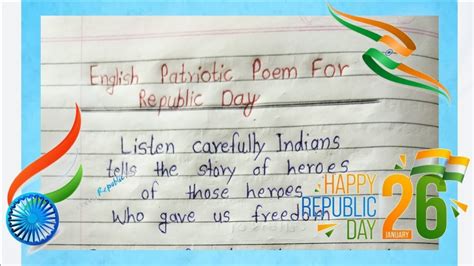 English Patriotic Poem For
Republic Day
Listen carefully Indians
tells the story of heroes
Republic
of those heroes
Who gave us freedom
HAPPY
REPUBLIC
DAY
26
JANUARY